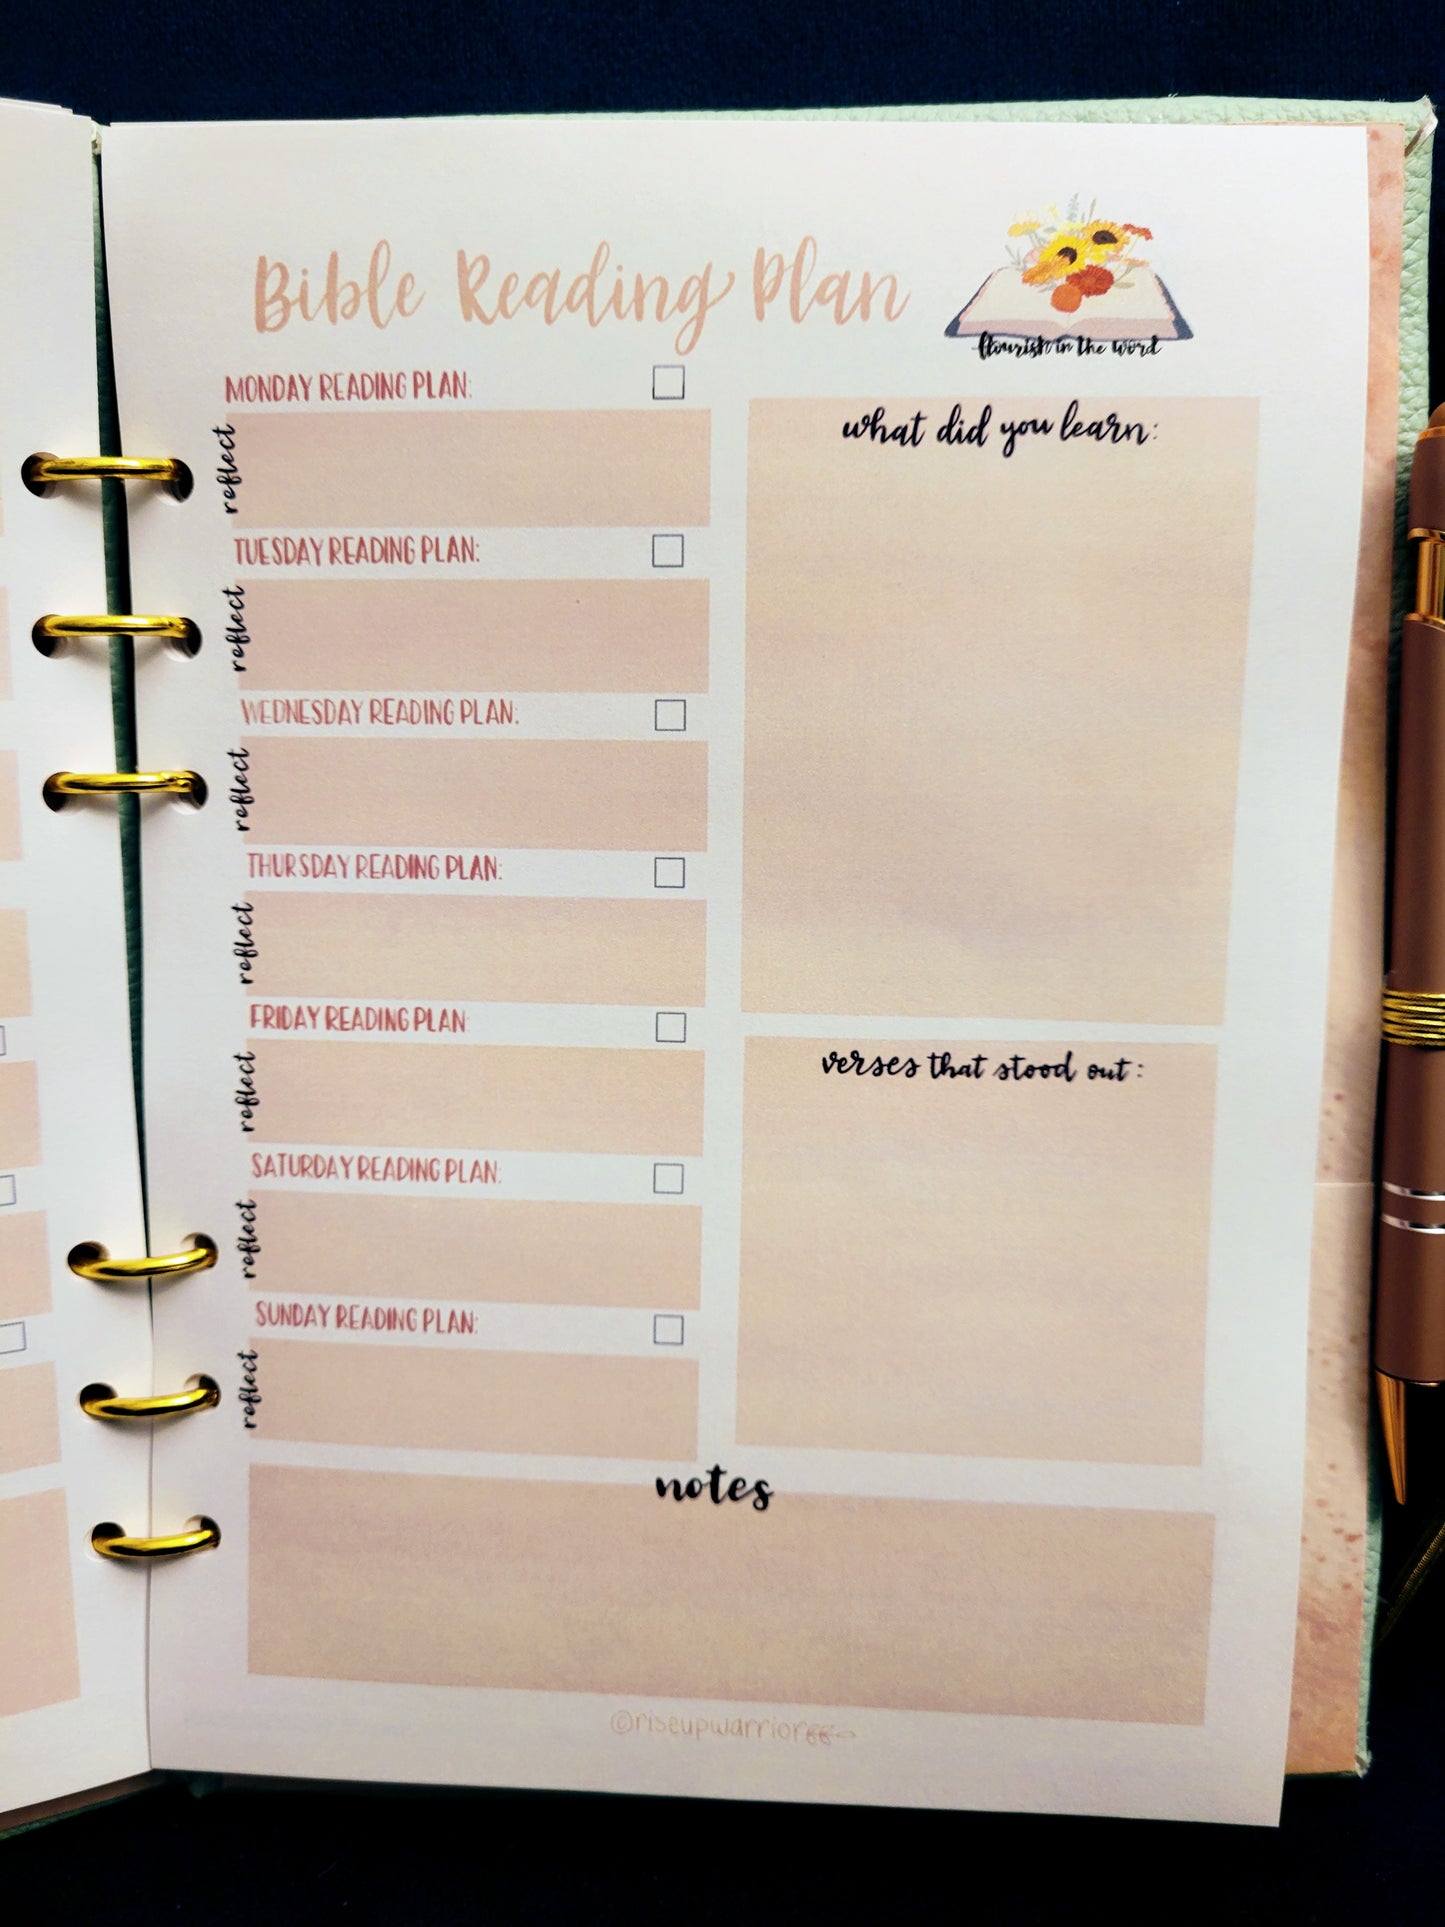 Bible Reading Plan
flourish in the word
MONDAY READING PLAN:
reflect
TUESDAY READING PLAN:
reflect
WEDNESDAY READING PLAN:
reflect
THURSDAY READING PLAN:
reflect
FRIDAY READING PLAN:
reflect
SATURDAY READING PLAN:
reflect
SUNDAY READING PLAN:
reflect
what did you learn:
verses that stood out:
notes